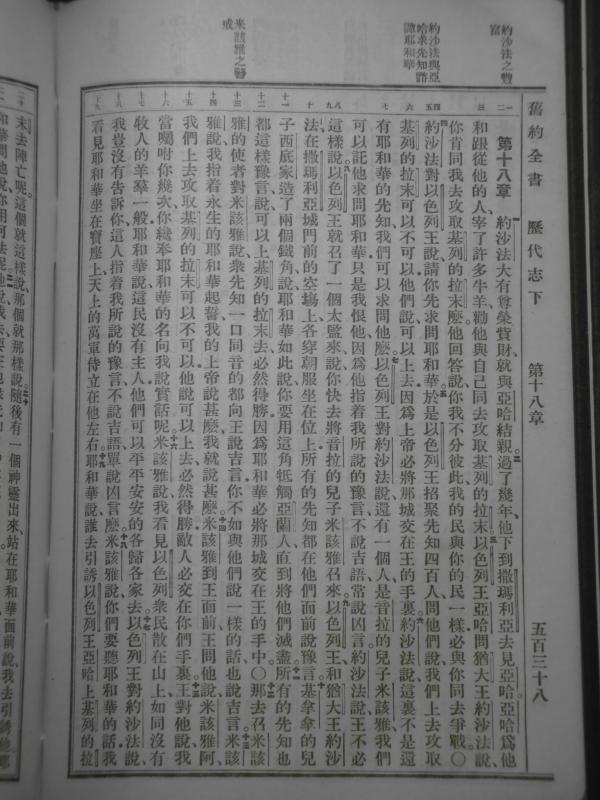 舊約全書　歷代志下　第十八章　五百三十八
約沙法之豐富
約沙法與亞哈求先知諮諏耶和華
米該雅之警戒
第十八章　約沙法大有尊榮貲財、就與亞哈結親、過了幾年、他下到撒瑪利亞去見亞哈、亞哈爲他
和跟從他的人、宰了許多牛羊、勸他與自己同去攻取基列的拉末、以色列王亞哈問猶大王約沙法說、
你肯同我去攻取基列的拉末麼、他回答說、你我不分彼此、我的民與你的民一樣、必與你同去爭戰。〇
約沙法對以色列王說、請你先求問耶和華、於是以色列王招聚先知四百人、問他們說、我們上去攻取
基列的拉末、可以不可以、他們說、可以上去、因爲上帝必將那城交在王的手裏、約沙法說、這裏不是還
有耶和華的先知、我們可以求問他麼、以色列王對約沙法說、還有一個人、是音拉的兒子米該雅、我們
可以託他求問耶和華、只是我恨他、因爲他指着我所說的豫言、不說吉語、常說凶言、約沙法說、王不必
這樣說、以色列王就召了一個太監來、說、你快去將音拉的兒子米該雅召來、以色列王和猶大王約沙
法在撒瑪利亞城門前的空場上、各穿朝服、坐在位上、所有的先知都在他們面前說豫言、基拿拿的兒
子西底家造了兩個鐵角、說、耶和華如此說、你要用這角牴觸亞蘭人、直到將他們滅盡、所有的先知也
都這樣豫言說、可以上基列的拉末去、必然得勝、因爲耶和華必將那城交在王的手中。〇那去召米該
雅的使者對米該雅說、衆先知一口同音的都向王說吉言、你不如與他們說一樣的話、也說吉言、米該
雅說、我指着永生的耶和華起誓、我的上帝說甚麼、我就說甚麼、米該雅到王面前、王問他說、米該雅阿、
我們上去攻取基列的拉末、可以不可以、他說、可以上去、必然得勝、敵人必交在你們手裏、王對他說、我
當囑咐你幾次、你纔奉耶和華的名向我說實話呢、米該雅說、我看見以色列衆民散在山上、如同沒有
牧人的羊羣一般、耶和華說、這民沒有主人、他們可以平平安安的各歸各家去、以色列王對約沙法說、
我豈沒有告訴你、這人指着我所說的豫言、不說吉語、單說凶言麼、米該雅說、你們要聽耶和華的話、我
看見耶和華坐在寶座上、天上的萬軍侍立在他左右、耶和華說、誰去引誘以色列王亞哈上基列的拉
末去陣亡呢、這個就這樣說、那個就那樣說、隨後有一個神靈出來、站在耶和華面前、說、我去引誘他、耶